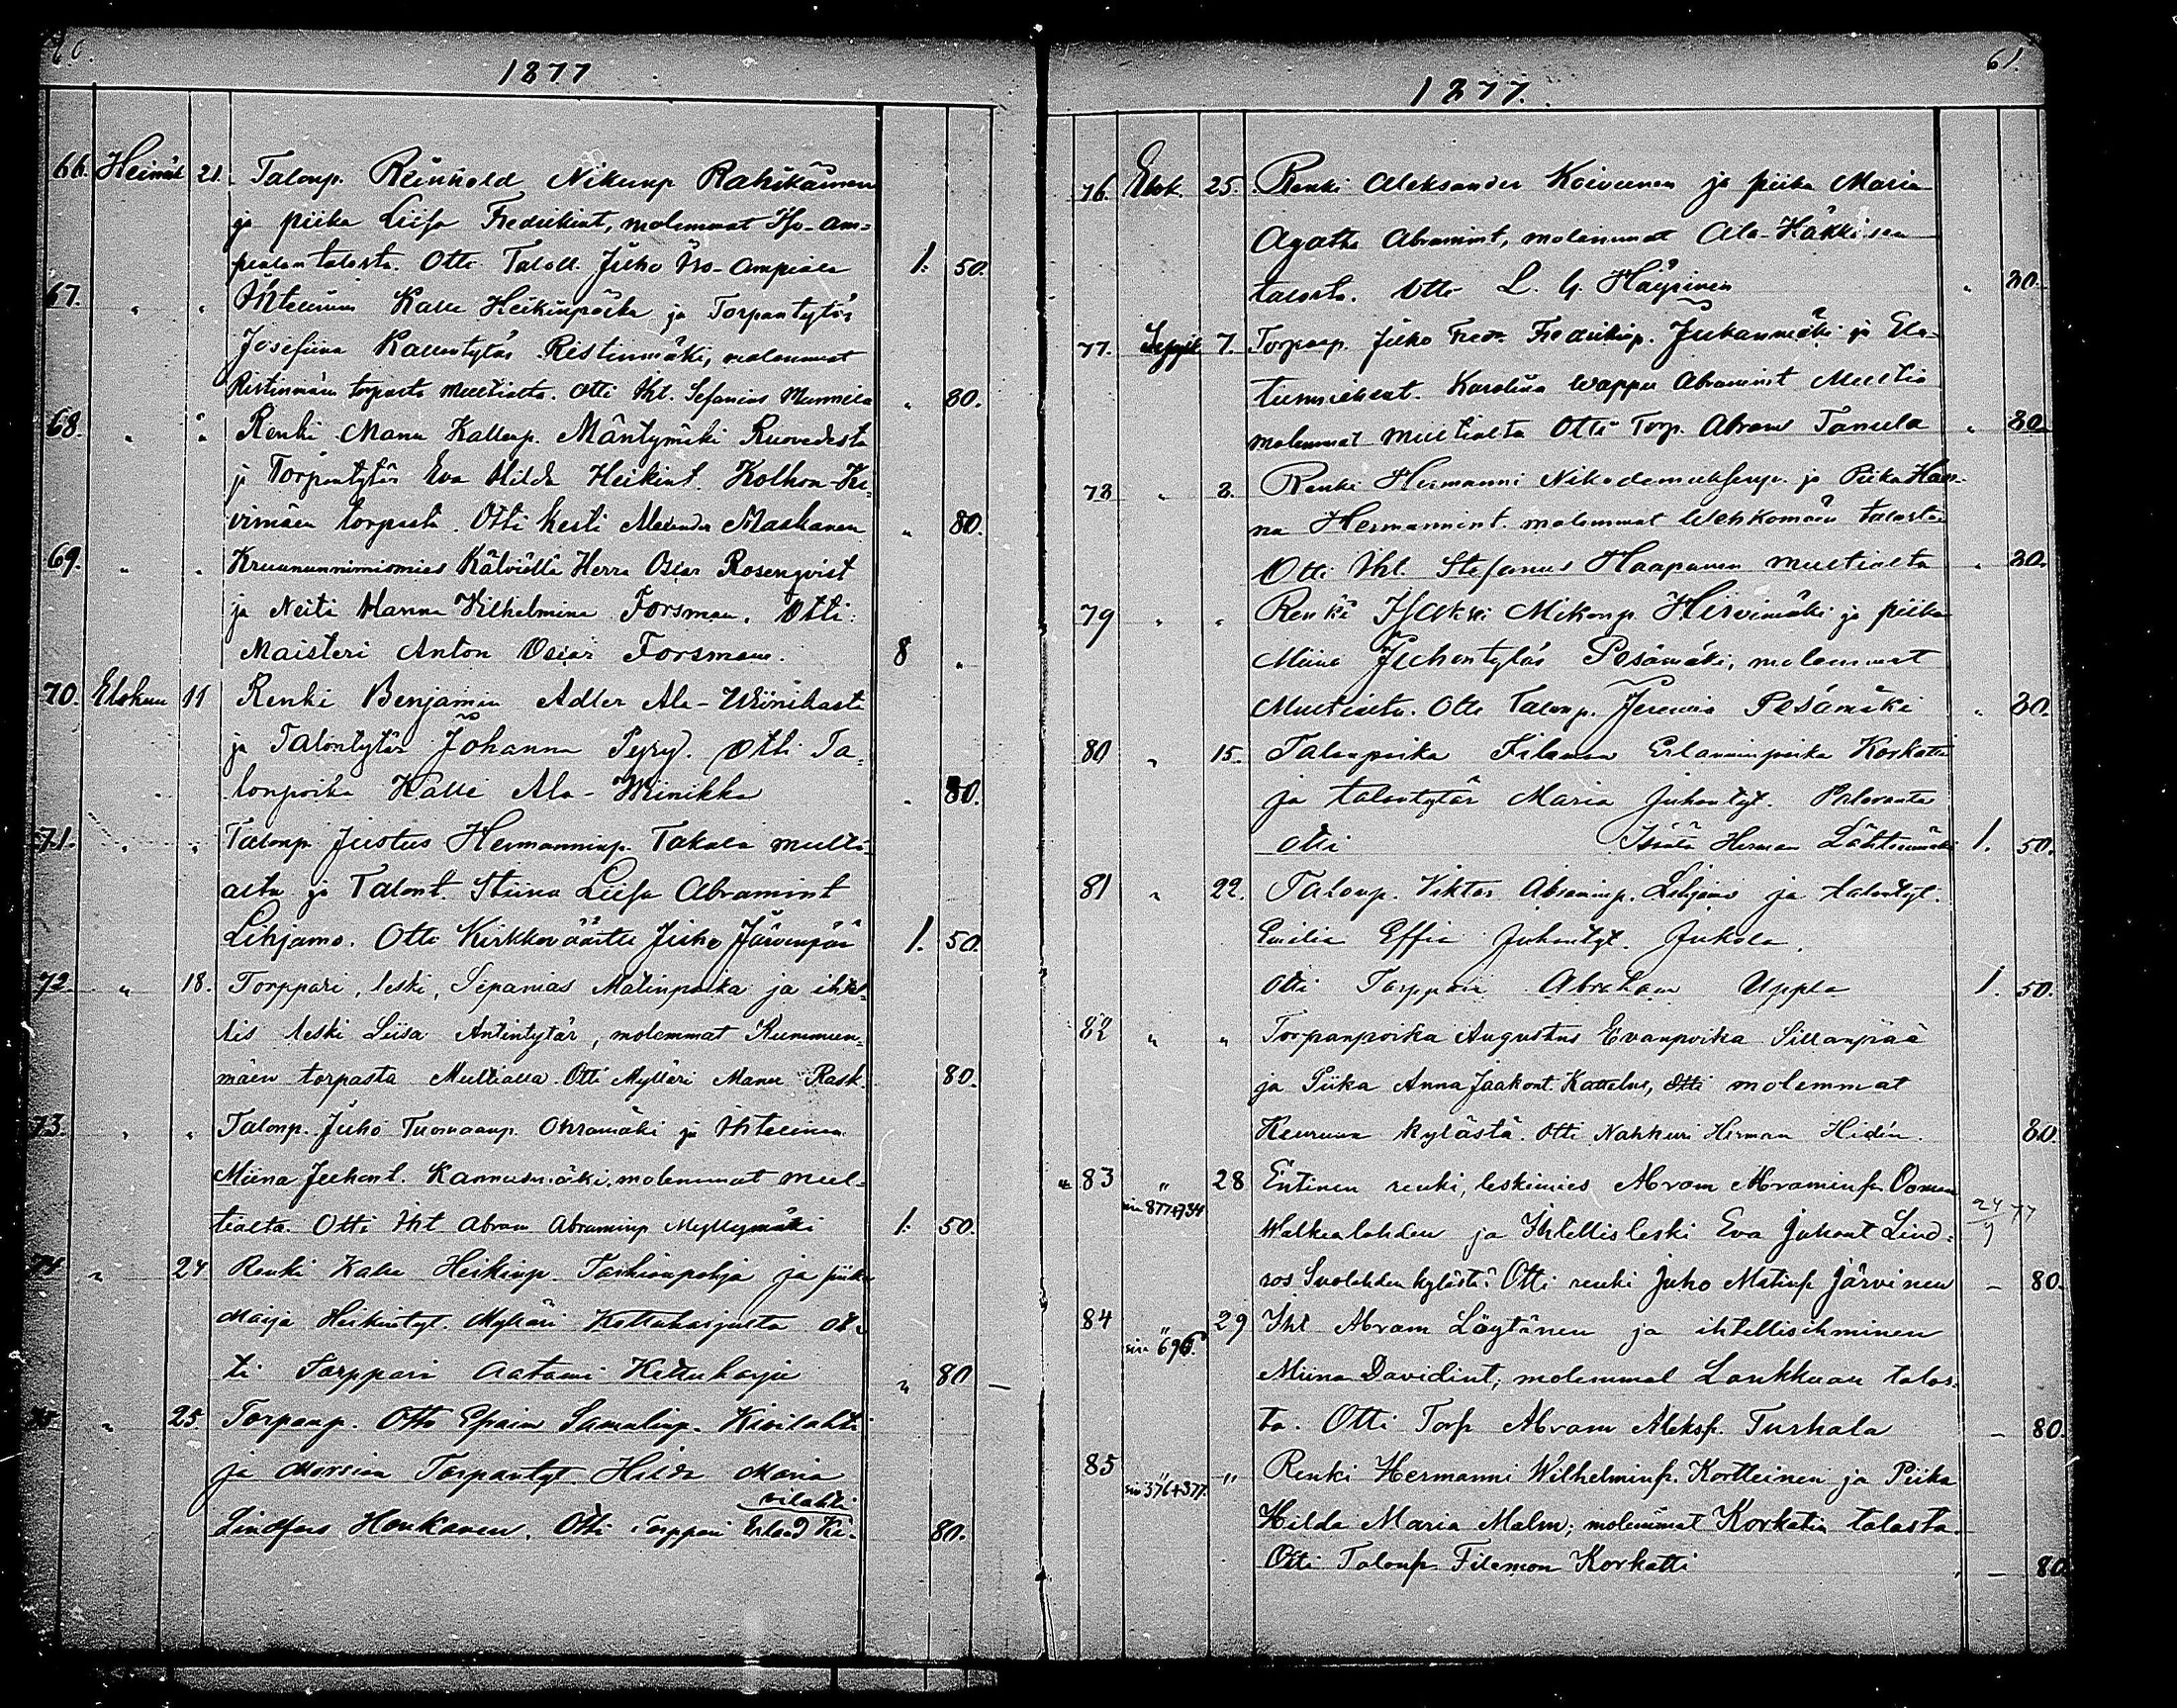 60.
1877
66. Heinäk 21. Talonp. Reinhold Nikunp Rahikainen
ja piika Liisa Fredrikint, molemmat Iso-Am=
pialan talosta. Otti Taloll. Juho Iso-Ampiala 1: 50.
67. " " Ihtellinen Kalle Heikinpoika ja Torpantytär
Josefiina Kallentytär Ristinmäki, molemmat
Ristinmäen torpasta Multialta. Otti Iht. Sefanias Mannila " 80.
68. " " Renki Manu Kallenp. Mäntymäki Ruovedestä
ja Torpantytär Eva Hilda Heikint. Kolhon-Ki-
vimäen torpasta. Otti kesti Alexander Maskanen " 80.
69. " " Kruununnimismies Kälviällä Herra Oskar Rosenqvist
ja Neiti Hanna Vilhelmina Forsman. Otti:
Maisteri Anton Oskar Forsman. 8 "
70. Elokuu 11 Renki Benjamin Adler Ala-Wiinikasta
ja Talontytär Johanna Pyry. Otti Ta-
lonpoika Kalle Ala-Wiinikka " 80.
71. " " Talonp Justus Hermanninp. Takala multi-
alta ja Talont. Stiina Liisa Abramint
Lihjamo. Otti Kirkkoväärti Juho Järvenpää 1. 50.
72. " 18. Torppari, leski, Sepanias Matinpoika ja ihtel-
lis leski Liisa Antintytär, molemmat Kummun-
mäen torpasta Multialla. Otti Mylläri Manu Rask. 80.
73. " " Talonp. Juho Tuomaanp. Ohramäki ja Ihtellinen
Miina Juhont. Kannusmäki, molemmat mul-
tialta. Otti Iht Abram Abraminp Myllymäki 1. 50.
74 " 24 Renki Kalle Heikinp. Tarhianpohja ja piika
Maija Heikintyt. Mylläri Kettuharjulta ot-
ti Torppari Aatami Kettuharju " 80 —
75. " 25. Torpanp. Otto Efraim Samulinp. Kivilahti
ja Morsian Torpantyt. Hilda Maria
Lindfors Honkanen. Otti Torppari Erland Ki-
vilahti 80.
61.
1877.
76. Elok. 25. Renki Aleksander Koivunen ja piika Maria
Agatha Abramint, molemmat Ala-Häkkisen
talosta. Otti L. G. Häyrinen " 80.
77. Syysk 7. Torpanp. Juho Fredrikinp. Jukanmäki ja Ela-
tusmiehent. Karoliina Wappu Abramint Multia
molemmat Multialta Otti Torp. Abram Tanula " 80.
78 " 8. Renki Hermanni Nikodemuksenp. ja Piika Han-
na Hermannint. molemmat Wehkomäen talosta
Otti Iht. Stefanus Haapanen multialta " 80.
79 " " Renki Isakki Mikonp. Hirvimäki ja piika
Miina Juhontytär Pesämäki, molemmat
Multialta. Otti Talonp. Jeremia Pesämäki " 80.
80 " 15. Talonpoika Filemon Erlanninpoika Korkatti
ja talontytär Maria Juhontyt. Palovanta
otti Isäntä Herman Lähteenmäki 1. 50.
81 " 22. Talonp. Viktor Abraminp. Lihjamo ja talontyt.
Emilia Effia Juhontyt. Jukola.
Otti Torppari Abraham Uppla 1. 50.
82 " " Torpanpoika Augustus Evanpoika Sillanpää
ja Piika Anna Jaakont. Kattelus, Otti molemmat
Keuruun kylästä. Otti Nahkuri Herman Hidén. 80.
" 83 " 28 Entinen renki, leskimies Abram Abraminp. Oonan
siv 877+734 24/9 77
Walkealahden ja Ihtellisleski Eva Juhont Lind-
ros Suolahden kylästä. Otti renki Juho Matinp Järvinen — 80.
84 " 29 Iht Abram Löytänen ja ihtellisihminen
siv 696.
Miina Davidint, molemmat Lankkuan talos-
ta. Otti Torp Abram Aleksp. Turkala — 80.
85 " " Renki Hermanni Wilhelminp. Kortteinen ja Piika
siv 376+377.
Hilda Maria Malm, molemmat Korkatin talosta.
Otti Talonp. Filemon Korkatti — 80.